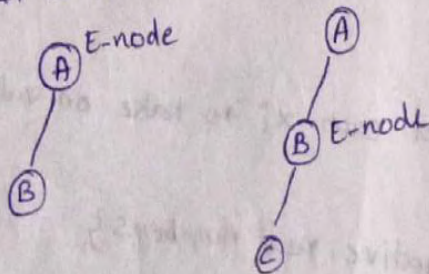 E-node
A
B
A
B E-node
C